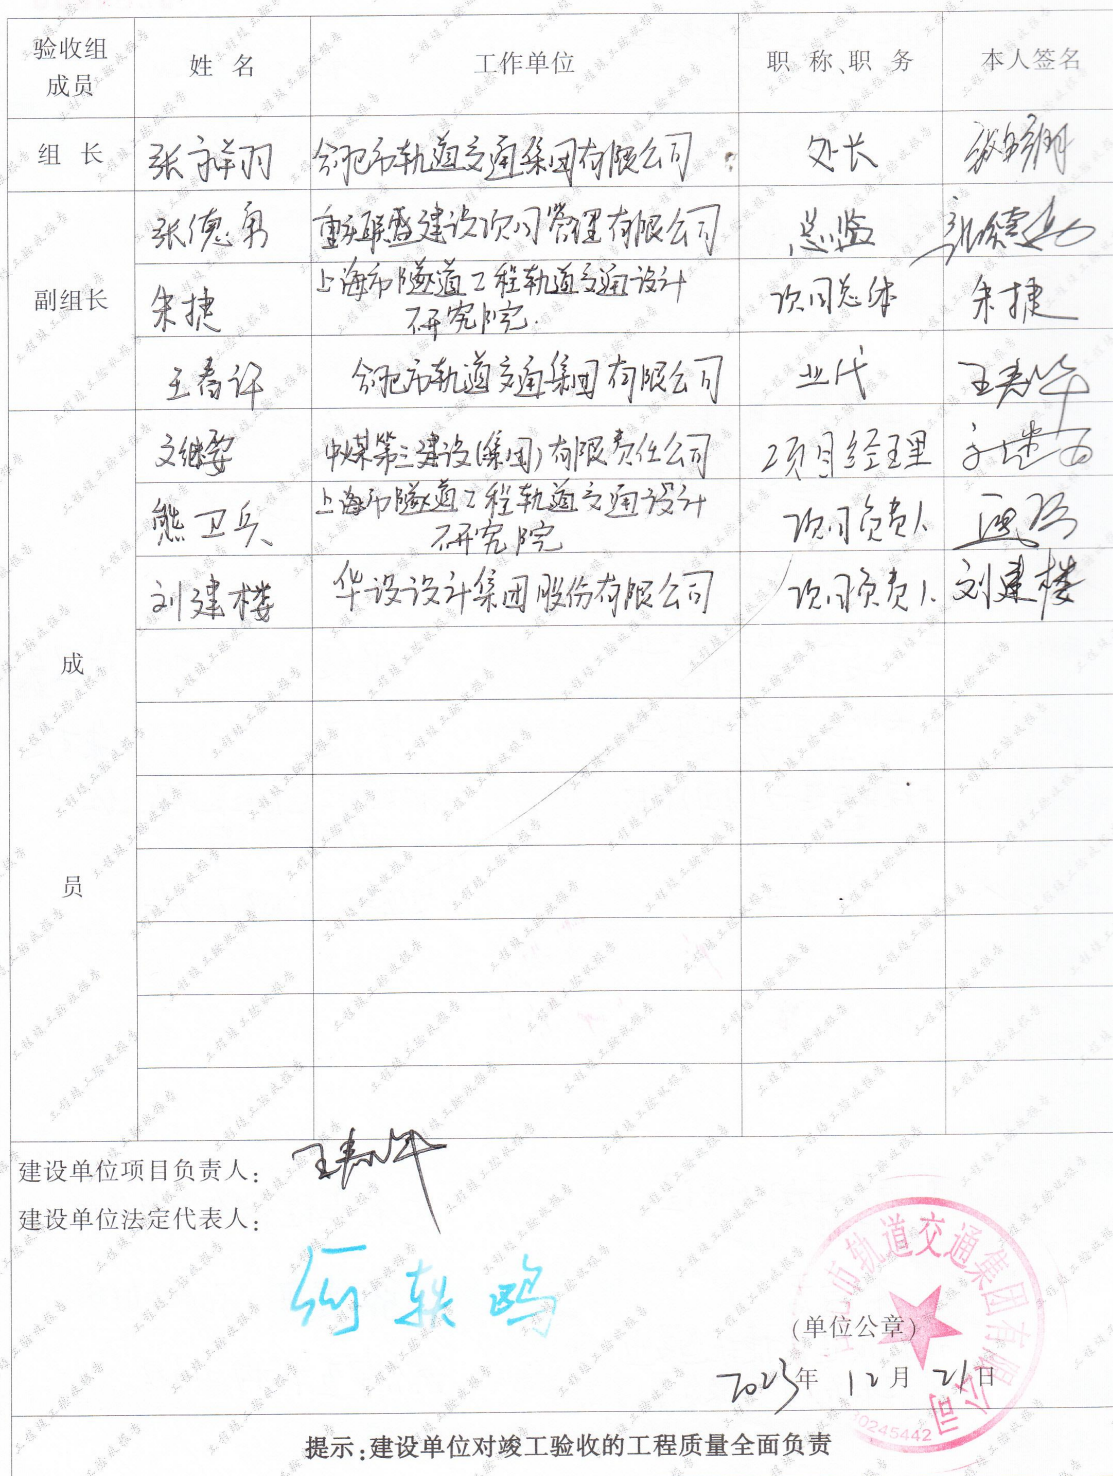 验收组成员 姓名 工作单位 职称、职务 本人签名
组长 张祥羽 合肥市轨道交通集团有限公司 处长
副组长
张德勇 重庆联盛建设项目管理有限公司 总监 张德勇
朱捷 上海市隧道工程轨道交通设计
研究院. 项目总体 朱捷
王春许 合肥市轨道交通集团有限公司 业代
成员
中煤第三建设(集团)有限责任公司 项目经理
熊卫兵 上海市隧道工程轨道交通设计
研究院 项目负责人
刘建楼 华设设计集团股份有限公司 项目负责人 刘建楼
建设单位项目负责人:
建设单位法定代表人:
何轶鸥
市轨道交通集团有限公司
(单位公章)
2023年12月21日
10245442
提示:建设单位对竣工验收的工程质量全面负责
工程竣工验收报告